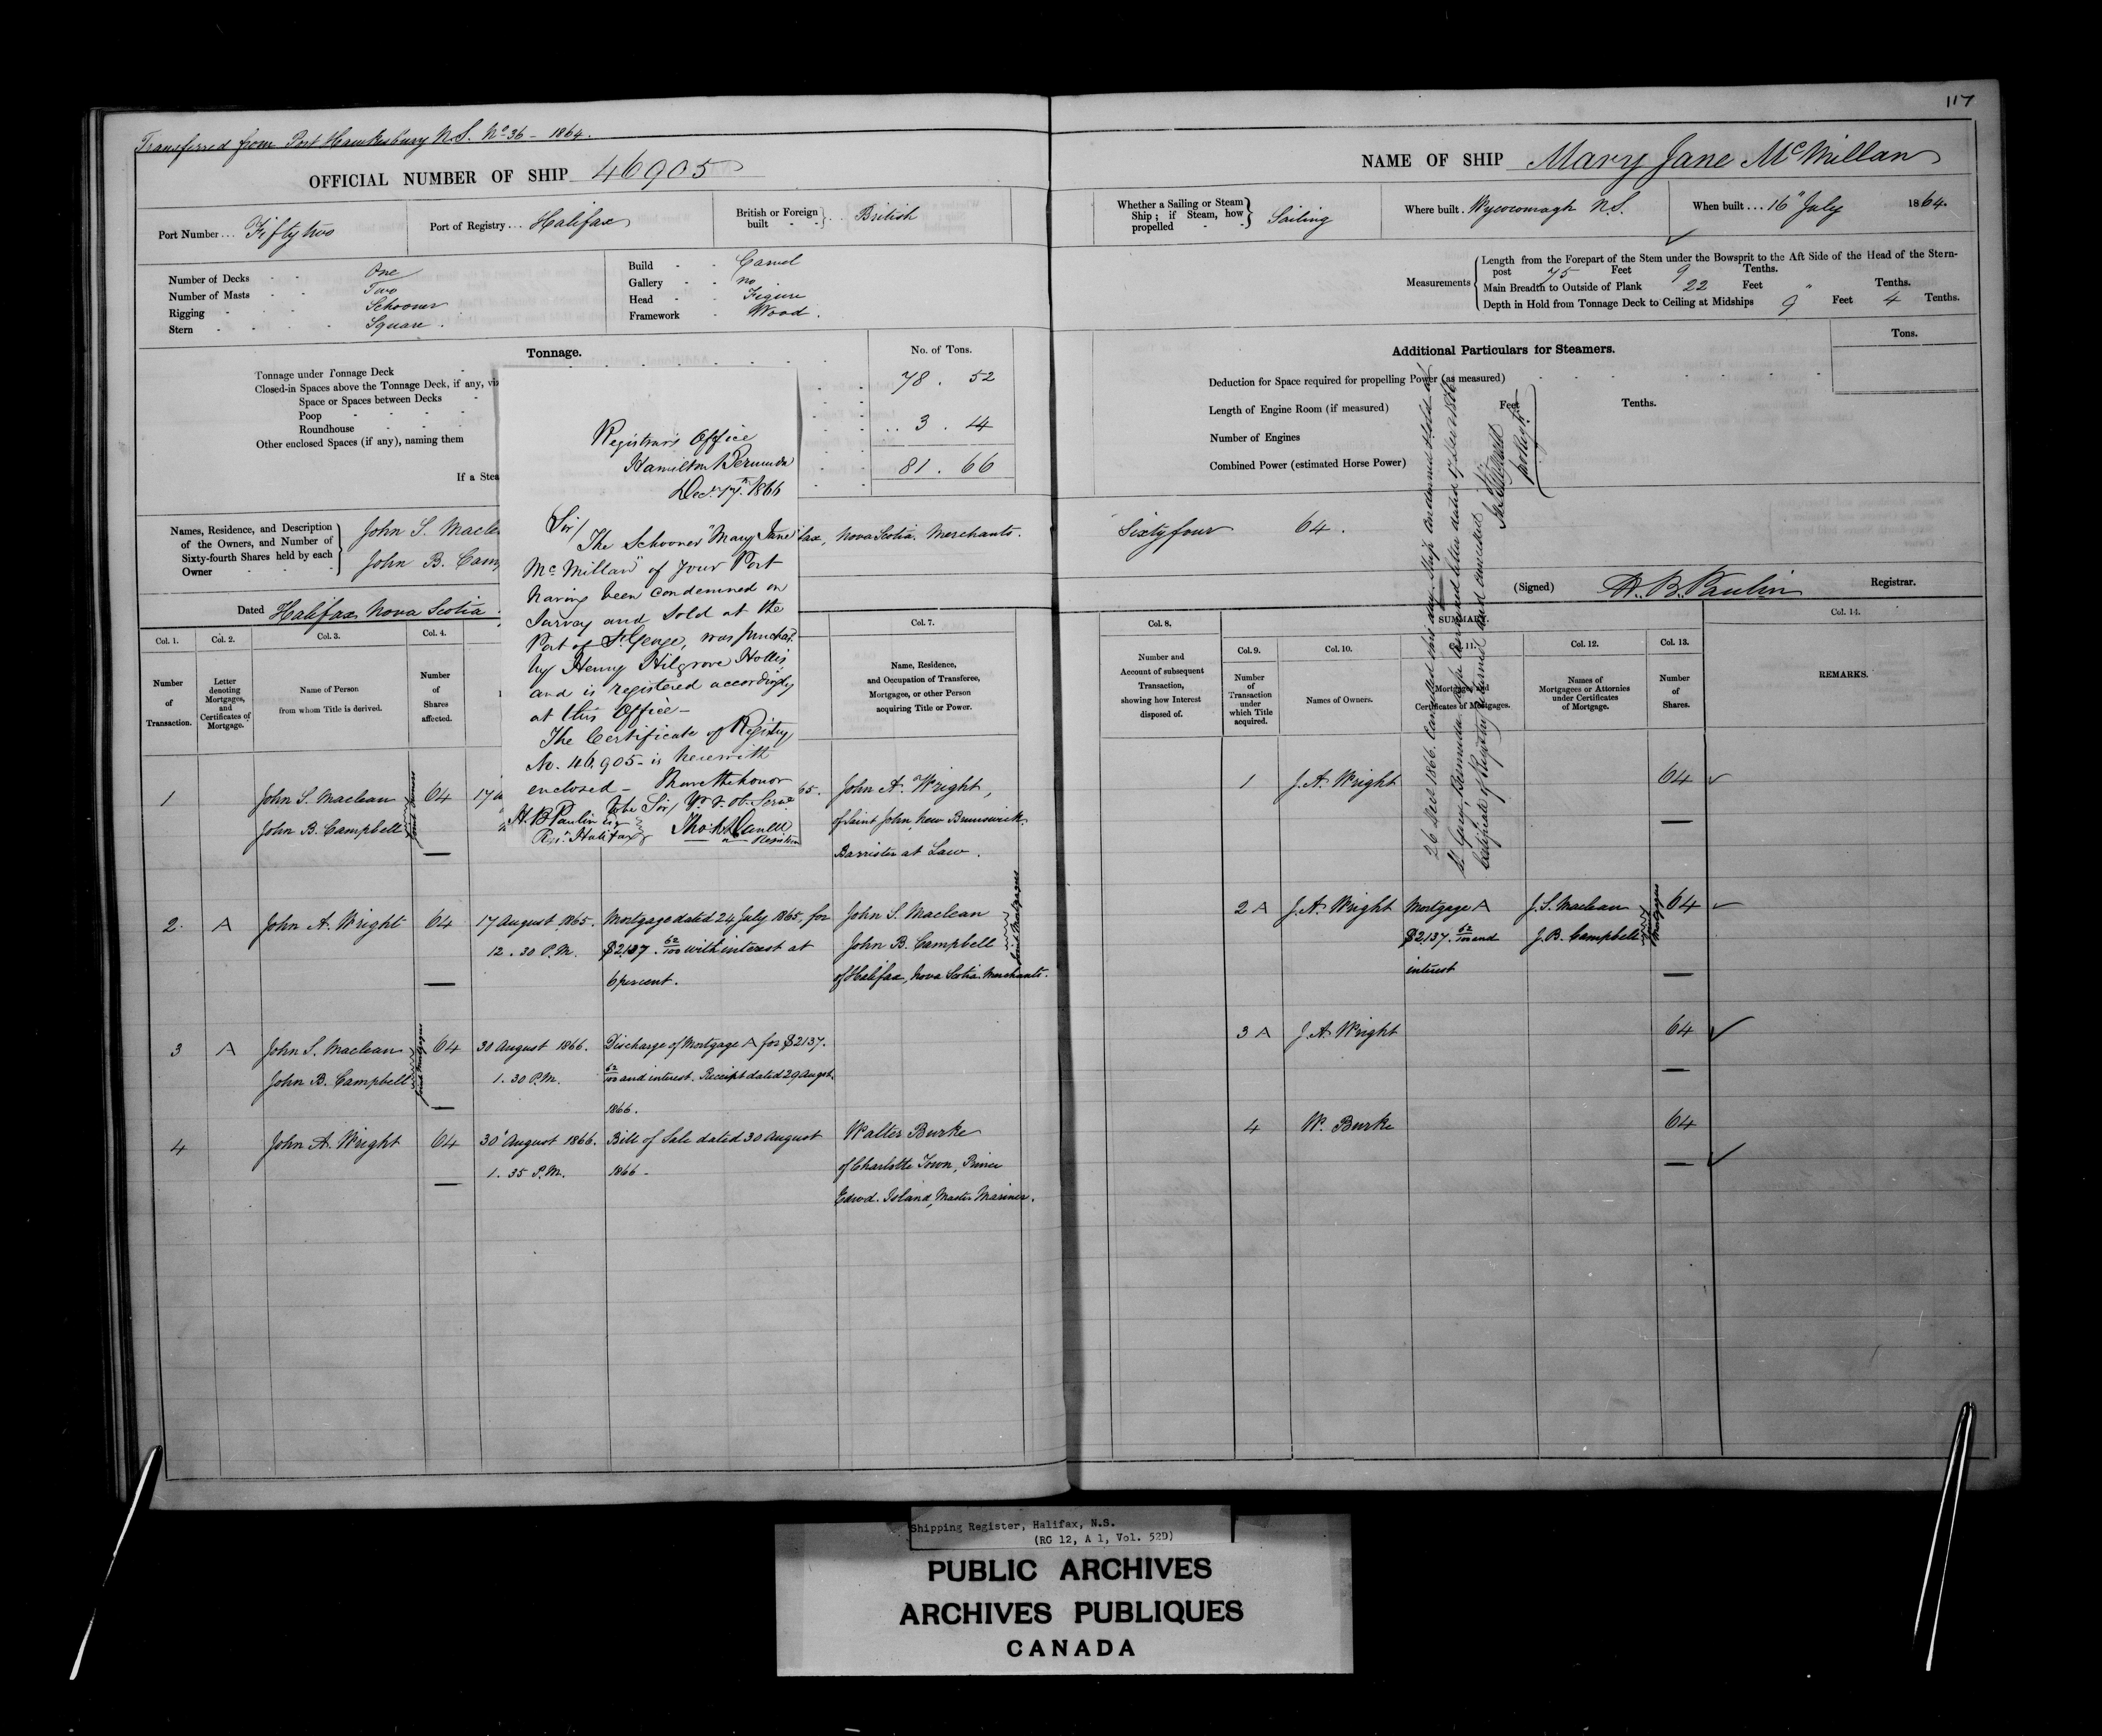 117
Transferred from Port Hawkesbury N.S. No 36 - 1864.
OFFICIAL NUMBER OF SHIP 46905
NAME OF SHIP Mary Jane McMillan
Port Number... Fifty two
Port of Registry... Halifax
British or Foreign built } British
Whether a Sailing or Steam Ship; if Steam, how propelled } Sailing
Where built. Wycocomagh N.S.
When built... 16" July 1864.
Number of Decks One
Number of Masts Two
Rigging Schooner
Stern Square.
Build Carvel
Gallery no
Head Figure
Framework Wood.
Measurements
Length from the Forepart of the Stem under the Bowsprit to the Aft Side of the Head of the Stern-
post 75 Feet 9 Tenths.
Main Breadth to Outside of Plank 22 Feet " Tenths.
Depth in Hold from Tonnage Deck to Ceiling at Midships 9 Feet 4 Tenths.
Tonnage.
No. of Tons.
Tonnage under Tonnage Deck 78. 52
Closed-in Spaces above the Tonnage Deck, if any, viz
Space or Spaces between Decks
Poop
Roundhouse
Other enclosed Spaces (if any), naming them
3. 14
81. 66
If a Stea
Additional Particulars for Steamers.
Tons.
Deduction for Space required for propelling Power (as measured)
Length of Engine Room (if measured) Feet Tenths.
Number of Engines
Combined Power (estimated Horse Power)
Registrar's Office
Hamilton Bermuda
Decr 17th 1866
Sir/
The Schooner "Mary Jane
McMillan" of your Port
having been condemned on
Survey and sold at the
Port of St George, was purchas.
by Henry Hilgrove Hollis
and is registered accordingly
at this Office -
The Certificate of Registry
No. 46.905 - is herewith
enclosed - I have the honor
to be Sir/ Yr. ob. Servt
H. B. Paulin Esq
Regr. Halifax
Registrar
Names, Residence, and Description
of the Owners, and Number of
Sixty-fourth Shares held by each
Owner
John S. Macle
John B. Cam
fax, Nova Scotia. Merchants.
Sixty four 64.
Dated Halifax Nova Scotia
(Signed) H. B. Paulin Registrar.
26 Decr 1866. Cancelled this day, Ship Condemned & Sold at
St Georges, Bermuda, as per annexed letter dated 17 Decr 1866
Certificate of Registry returned and cancelled
Col. 1. Number of Transaction.
Col. 2. Letter denoting Mortgages, and Certificates of Mortgage.
Col. 3. Name of Person from whom Title is derived.
Col. 4. Number of Shares affected.
Col. 7. Name, Residence, and Occupation of Transferee, Mortgagee, or other Person acquiring Title or Power.
Col. 8. Number and Account of subsequent Transaction, showing how Interest disposed of.
SUMMARY.
Col. 9. Number of Transaction under which Title acquired.
Col. 10. Names of Owners.
Col. 11. Mortgages and Certificates of Mortgages.
Col. 12. Names of Mortgagees or Attornies under Certificates of Mortgage.
Col. 13. Number of Shares.
Col. 14. REMARKS.
1 John S. Maclean 64 17 65. John A. Wright,
John B. Campbell Joint Owners of Saint John, New Brunswick
Barrister at Law.
1 J. A. Wright 64
2. A John A. Wright 64 17 August 1865. Mortgage dated 24 July 1865, for John S. Maclean
12. 30 P.M. $2137. 62/100 with interest at John B. Campbell Joint Mortgagees
6 percent. of Halifax, Nova Scotia. Merchants.
2 A J. A. Wright Mortgage A J. S. Maclean 64
$2137. 62/100 and J. B. Campbell Joint Mortgagees
interest
3 A John S. Maclean 64 30 August 1866. Discharge of Mortgage A for $2137.
John B. Campbell Joint Mortgagees 1. 30 P.M. 62/100 and interest. Receipt dated 29 August,
1866.
3 A J. A. Wright 64
4 John A. Wright 64 30" August 1866. Bill of Sale dated 30 August Walter Burke
1. 35 P.M. 1866 - of Charlotte Town, Prince
Edwd. Island, Master Mariner.
4 W. Burke 64
Shipping Register, Halifax, N.S.
(RG 12, A 1, Vol. 52D)
PUBLIC ARCHIVES
ARCHIVES PUBLIQUES
CANADA